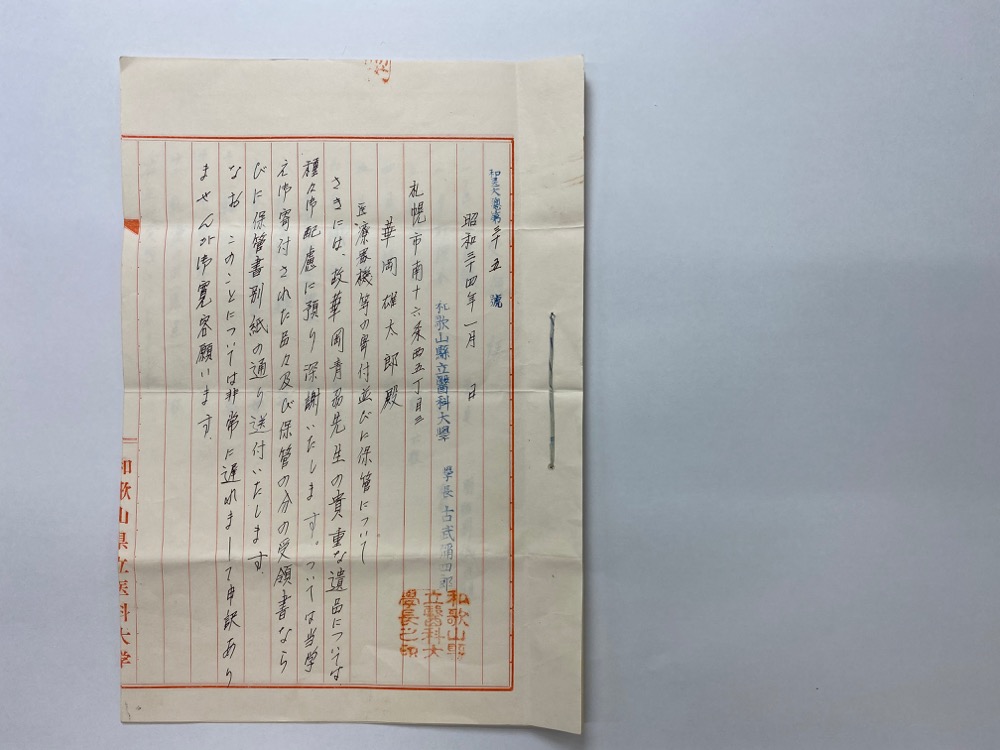 和医大総第三十五號
昭和三十四年一月 日
和歌山縣立醫科大學
學長 古武彌四郎
和歌山縣立醫科大學長之印
札幌市南十六条西五丁目三
華岡雄太郎殿
医療器機等の寄付並びに保管について
さきには、故華岡青洲先生の貴重な遺品については
種々御配慮に預り深謝いたします。ついては当学
え御寄付された品々及び保管の分の受領書なら
びに保管書別紙の通り送付いたします
なお このことについては非常に遅れまして申訳あり
ませんが御寛容願います。
和歌山県立医科大学